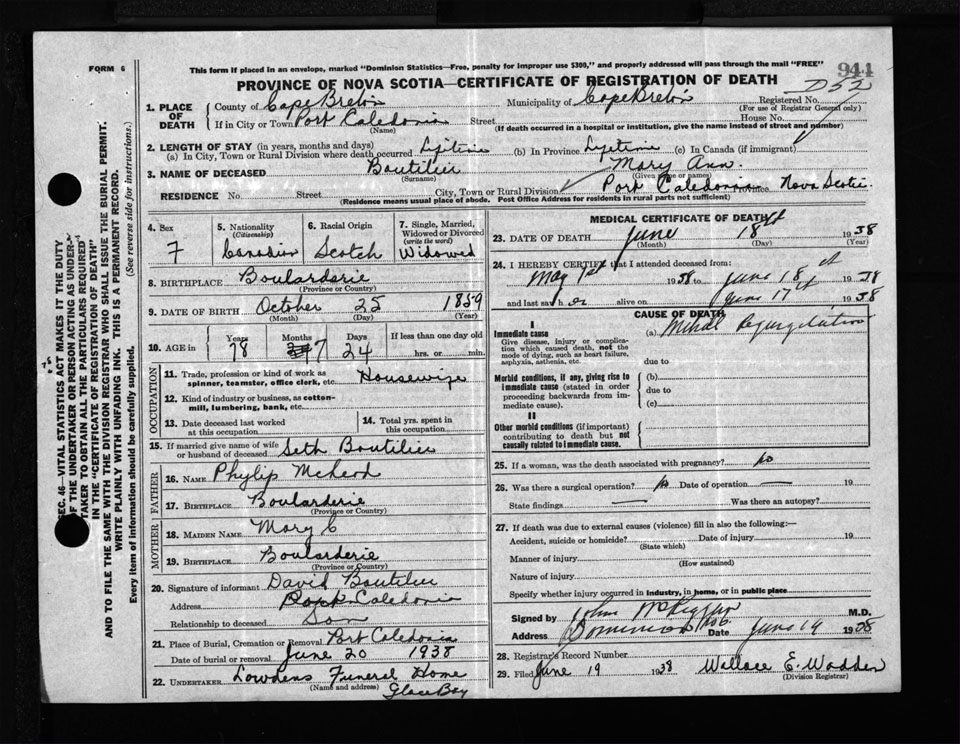 FORM 6
This form if placed in an envelope, marked "Dominion Statistics—Free, penalty for improper use $300," and properly addressed will pass through the mail "FREE"
944
PROVINCE OF NOVA SCOTIA—CERTIFICATE OF REGISTRATION OF DEATH
D52
1. PLACE OF DEATH
County of Cape Breton Municipality of Cape Breton Registered No.
(For use of Registrar General only)
If in City or Town Port Caledonia Street House No.
(Name) (If death occurred in a hospital or institution, give the name instead of street and number)
2. LENGTH OF STAY (in years, months and days)
(a) In City, Town or Rural Division where death occurred Lifetime (b) In Province Lifetime (c) In Canada (if immigrant)
3. NAME OF DECEASED Boutilier Mary Ann.
(Surname) (Given name or names)
RESIDENCE No. Street City, Town or Rural Division Port Caledonia Province Nova Scotia.
(Residence means usual place of abode. Post Office Address for residents in rural parts not sufficient)
4. Sex
F
5. Nationality
(Citizenship)
Canadian
6. Racial Origin
Scotch
7. Single, Married, Widowed or Divorced
(write the word)
Widowed
8. BIRTHPLACE Boularderie
(Province or Country)
9. DATE OF BIRTH October 25 1859
(Month) (Day) (Year)
10. AGE in
Years Months Days If less than one day old
78 7 24 hrs. or min.
OCCUPATION
11. Trade, profession or kind of work as spinner, teamster, office clerk, etc. Housewife
12. Kind of industry or business, as cotton-mill, lumbering, bank, etc.
13. Date deceased last worked at this occupation
14. Total yrs. spent in this occupation
15. If married give name of wife or husband of deceased Seth Boutilier
FATHER
16. NAME Phylip McLeod
17. BIRTHPLACE Boularderie
(Province or Country)
MOTHER
18. MAIDEN NAME Mary C
19. BIRTHPLACE Boularderie
(Province or Country)
20. Signature of informant David Boutilier
Address Port Caledonia
Relationship to deceased Son
21. Place of Burial, Cremation or Removal Port Caledonia
Date of burial or removal June 20 1938
22. UNDERTAKER Lowdens Funeral Home
(Name and address) Glace Bay
MEDICAL CERTIFICATE OF DEATH
23. DATE OF DEATH June 18th 1938
(Month) (Day) (Year)
24. I HEREBY CERTIFY that I attended deceased from:
May 1st 1938 to June 18th 1938
and last saw her alive on June 17th 1938
CAUSE OF DEATH
I
Immediate cause
Give disease, injury or complication which caused death, not the mode of dying, such as heart failure, asphyxia, asthenia, etc.
(a) Mitral Regurgitation
due to
Morbid conditions, if any, giving rise to immediate cause (stated in order proceeding backwards from immediate cause).
(b)
due to
(c)
II
Other morbid conditions (if important) contributing to death but not causally related to immediate cause.
25. If a woman, was the death associated with pregnancy? no
26. Was there a surgical operation? no Date of operation — 19
State findings — Was there an autopsy?
27. If death was due to external causes (violence) fill in also the following:—
Accident, suicide or homicide? Date of injury 19
(State which)
Manner of injury
(How sustained)
Nature of injury
Specify whether injury occurred in industry, in home, or in public place
Signed by John M. D.
Address Dominion Date June 19 1938
28. Registrar's Record Number
29. Filed June 19 1938 Wallace E. Wadden
(Division Registrar)
SEC. 46—VITAL STATISTICS ACT MAKES IT THE DUTY
OF THE UNDERTAKER OR PERSON ACTING AS UNDER-
TAKER TO OBTAIN ALL THE PARTICULARS REQUIRED
IN THE "CERTIFICATE OF REGISTRATION OF DEATH"
AND TO FILE THE SAME WITH THE DIVISION REGISTRAR WHO SHALL ISSUE THE BURIAL PERMIT.
WRITE PLAINLY WITH UNFADING INK. THIS IS A PERMANENT RECORD.
Every item of information should be carefully supplied. (See reverse side for instructions.)